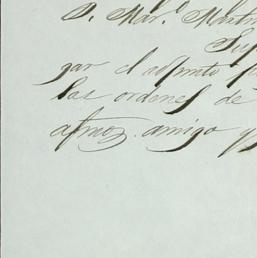 D. Mar.l Martin
Sup
gar el adjunto
las ordenes de
afmo. amigo q